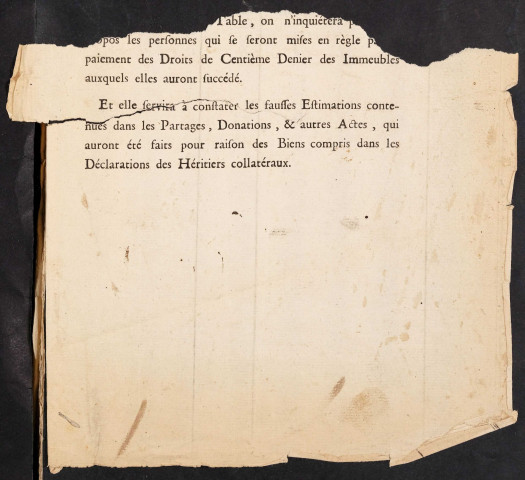 Table, on n'inquiétera
propos les personnes qui se seront mises en règle
paiement des Droits de Centième Denier des Immeubles
auxquels elles auront succédé.
Et elle servira à constater les fausses Estimations conte-
nues dans les Partages, Donations, & autres Actes, qui
auront été faits pour raison des Biens compris dans les
Déclarations des Héritiers collatéraux.